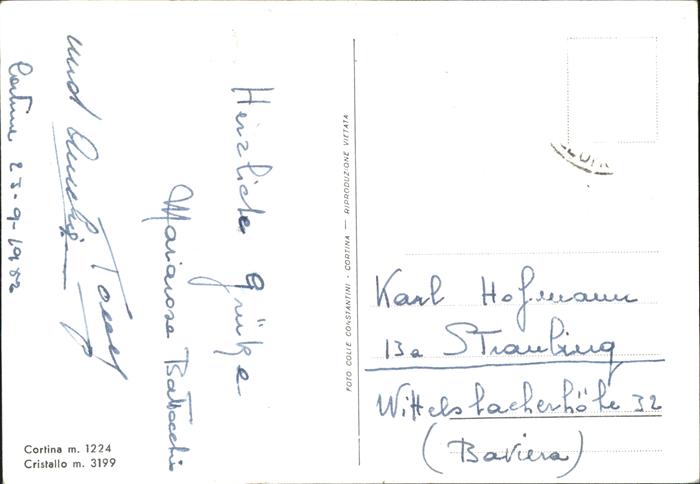 Herzliche Grüße
Marianose Battocchi
und
Cortina 23-9-1952
Cortina m. 1224
Cristallo m. 3199
FOTO COLLE CONSTANTINI - CORTINA — RIPRODUZIONE VIETATA
Karl Hofmann
13a Straubing
Wittelsbacherhöhe 32
(Baviera)